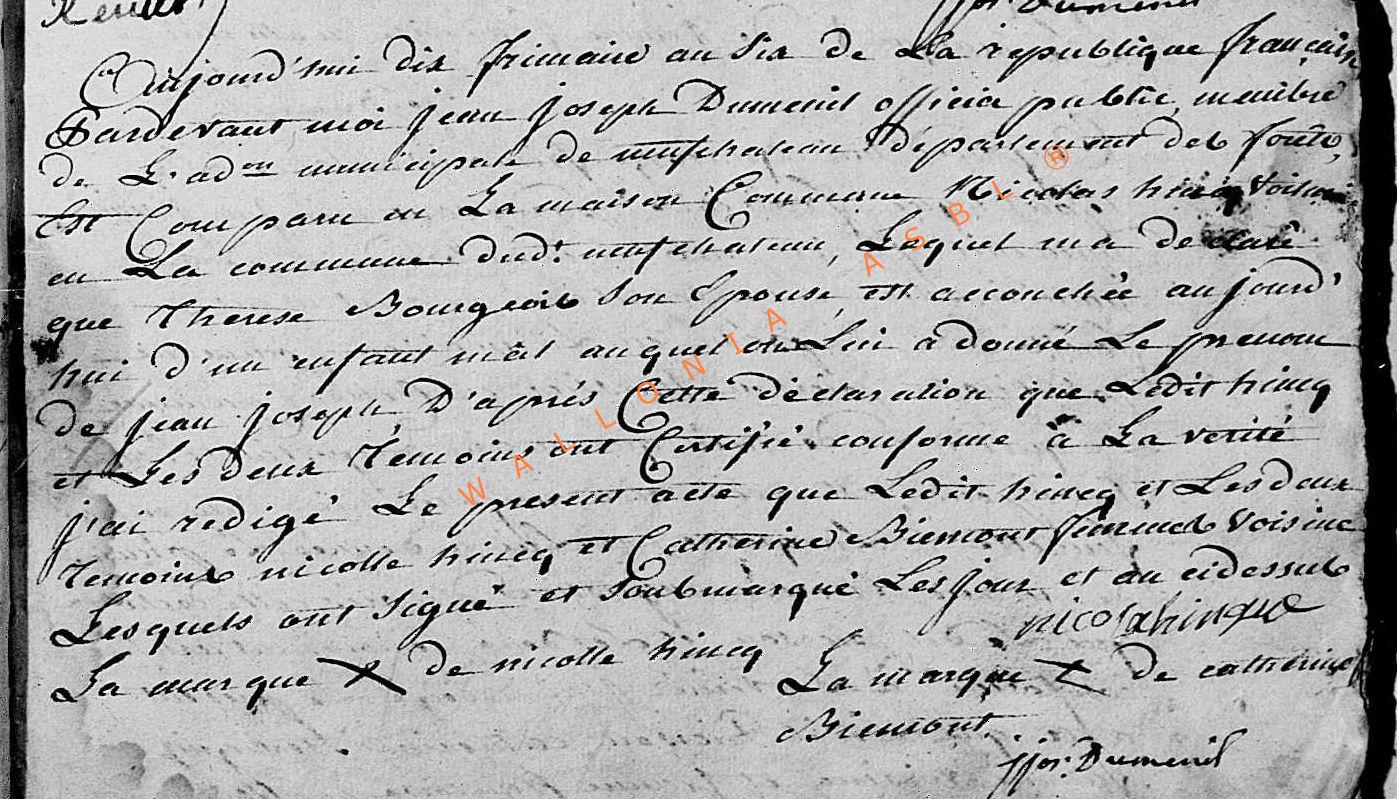 jjos: Dumenil
Aujourd'hui dix frimaire an Six de La republique francaise
Pardevant moi jean joseph Dumenil officier public, membre
de L'adon municipale de neufchateau département des forêts,
Est Comparu en La maison Commune Nicolas hincq Voisin
en La commune dudt. neufchateau, Lequel m'a declaré
que therese Bourgeois Son Epouse, est accouchée aujourd'
hui d'un enfant mâl auquel on Lui a donné Le prenom
de jean joseph D'après Cette déclaration que Ledit hincq
et Les deux temoins ont Certifié conforme à La verité
j'ai redigé Le present acte que Ledit hincq et Les deux
temoins nicolle hincq et Catherine Biemont femmes Voisine
Lesquels ont Signé et Soubmarqué Les jour et an cidessus
nicolahinque
La marque X de nicolle hincq
La marque X de catherine
Biemont.
jjos: Dumenil
WALLONIA ASBL ®